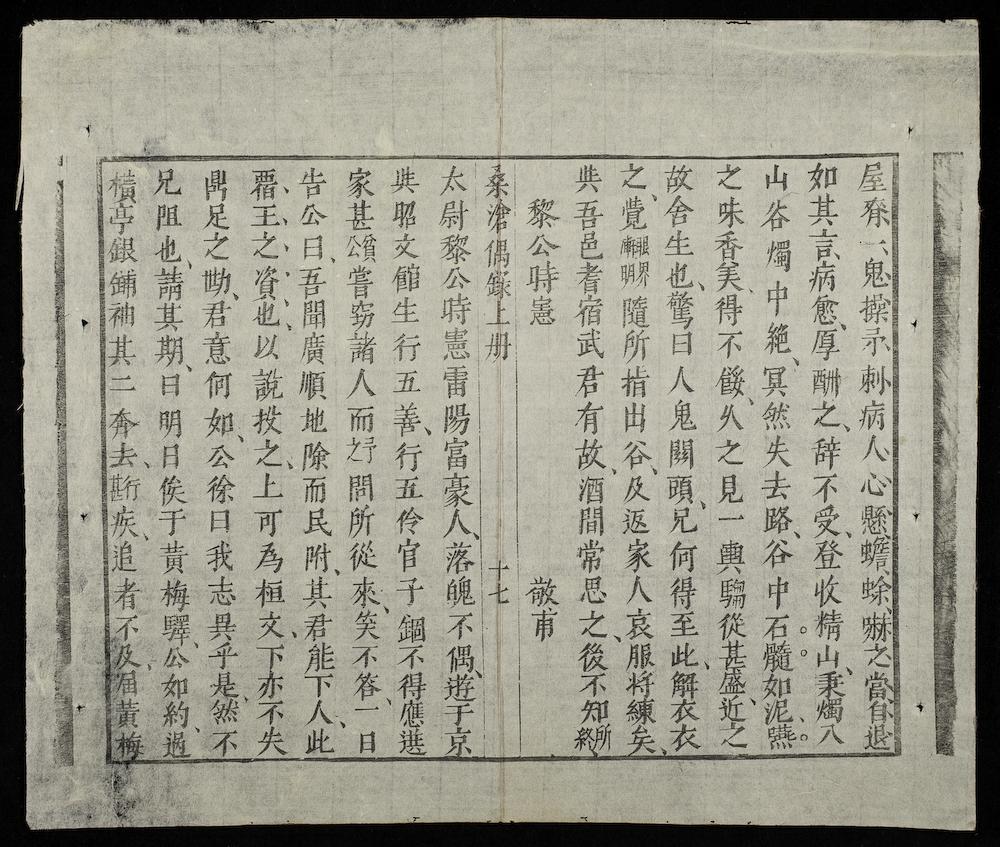 屋脊一鬼操示刺病人心懸蟾蜍嚇之當自退
如其言病愈厚酬之辞不受登收精山秉燭入
山谷燭中絶冥然失去路谷中石髓如泥嚥
之味香美得不餒久之見一輿騶從甚盛近之
故舍生也驚曰人鬼關頭兄何得至此解衣衣
之覺眼界漸明隨所指出谷及返家人哀服將練矣
與吾邑耆宿武君有故酒間常思之後不知所終
黎公時憲 敬甫
桑滄偶錄上册 十七
太尉黎公時憲雷陽富豪人落魄不偶遊于京
與昭文館生行五善行五伶官子錮不得應選
家甚貧公嘗窃諸人而予行問所從來笑不答一日
告公曰吾聞廣順地險而民附其君能下人此
覇王之資也以說投之上可為桓文下亦不失
鼎足之勛君意何如公徐曰我志異乎是然不
兄阻也請其期曰明日俟于黃梅驛公如約過
橫亭銀鋪袖其二奔去甚疾追者不及届黃梅